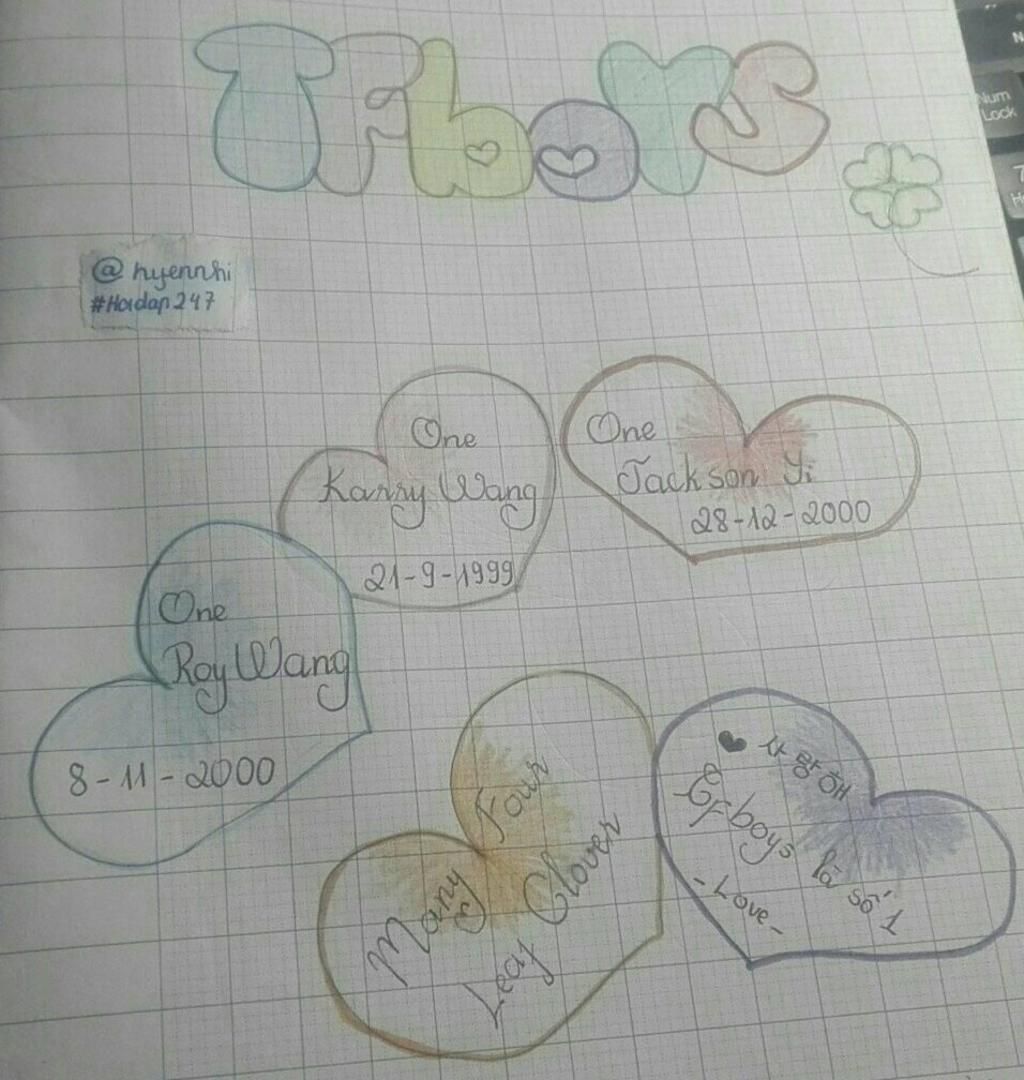 TFboys
@ hyennhi
#Hoidap247
One
Karry Wang
21-9-1999
One
Jackson Yi
28-12-2000
One
Roy Wang
8-11-2000
Many Four
Leaf Clover
♥ 사랑해
Tfboys là số 1
-Love-
Num
Lock
7